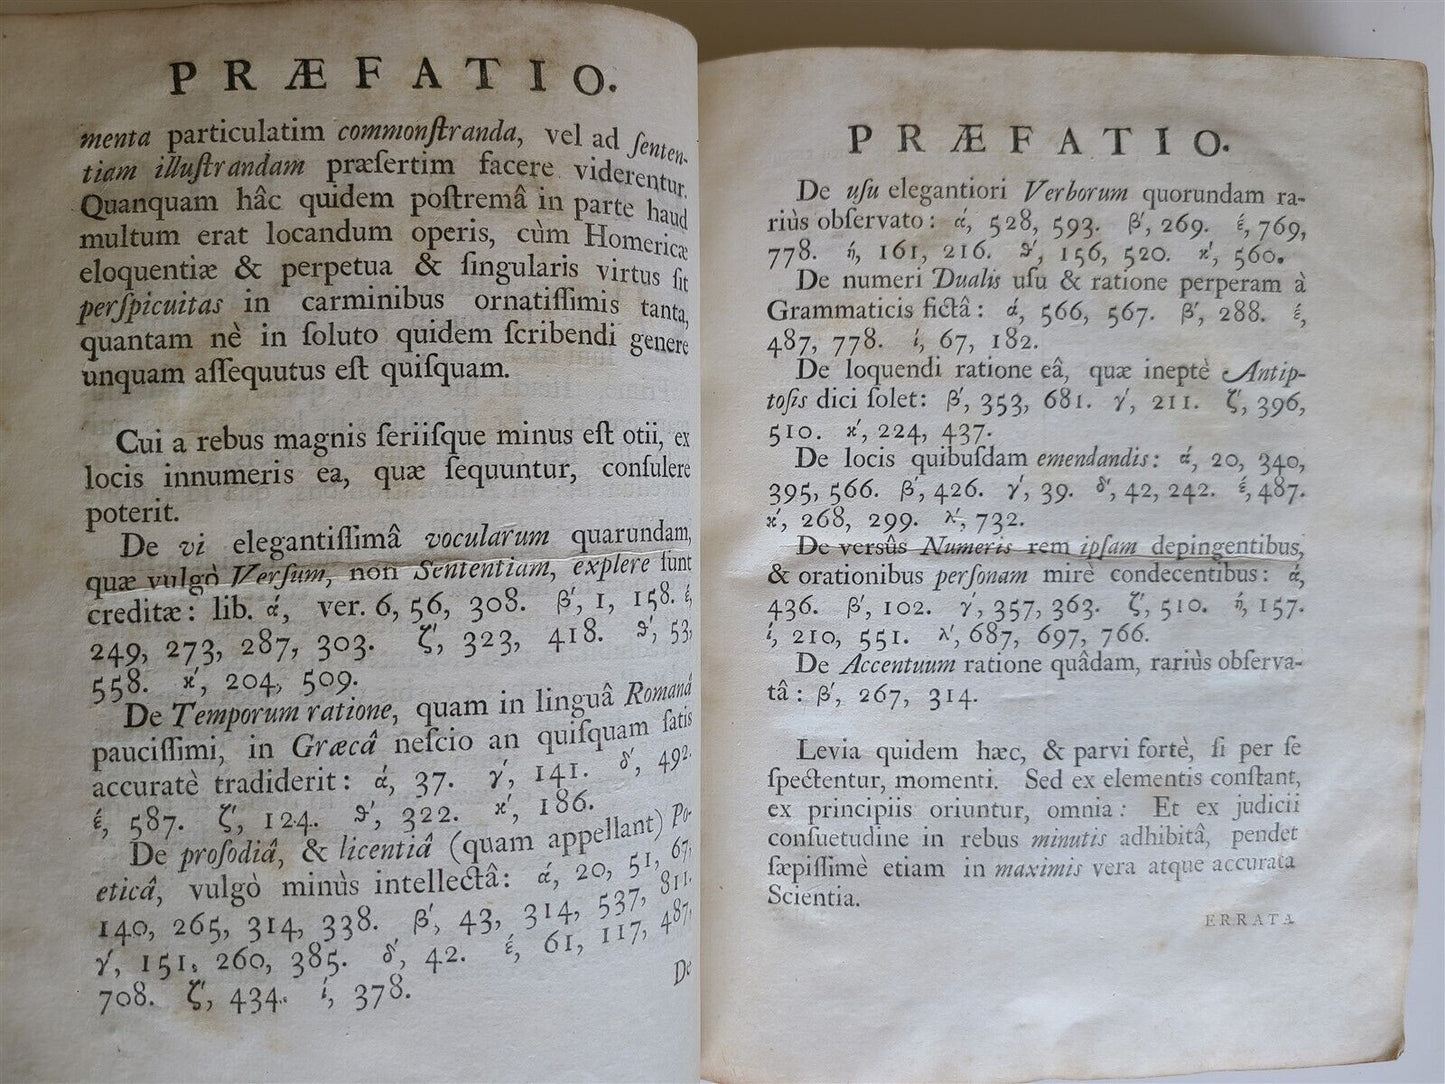 PRÆFATIO.
menta particulatim commonſtranda, vel ad ſenten-
tiam illuſtrandam præſertim facere viderentur.
Quanquam hâc quidem poſtremâ in parte haud
multum erat locandum operis, cùm Homericæ
eloquentiæ & perpetua & ſingularis virtus ſit
perſpicuitas in carminibus ornatiſſimis tanta,
quantam nè in ſoluto quidem ſcribendi genere
unquam aſſequutus eſt quiſquam.
Cui a rebus magnis ſeriiſque minus eſt otii, ex
locis innumeris ea, quæ ſequuntur, conſulere
poterit.
De vi elegantiſſimâ vocularum quarundam,
quæ vulgò Verſum, non Sententiam, explere ſunt
creditæ: lib. ά, ver. 6, 56, 308. β′, 1, 158. έ,
249, 273, 287, 303. ζ′, 323, 418. ϑ′, 53,
558. ϰ′, 204, 509.
De Temporum ratione, quam in linguâ Romanâ
pauciſſimi, in Græcâ neſcio an quiſquam ſatis
accuratè tradiderit: ά, 37. γ′, 141. δ′, 492.
έ, 587. ζ′, 124. ϑ′, 322. ϰ′, 186.
De proſodiâ, & licentiâ (quam appellant) Po-
eticâ, vulgò minùs intellectâ: ά, 20, 51, 67,
140, 265, 314, 338. β′, 43, 314, 537, 811,
γ′, 151, 260, 385. δ′, 42. έ, 61, 117, 487,
708. ζ′, 434. ί, 378.
De
PRÆFATIO.
De uſu elegantiori Verborum quorundam ra-
riùs obſervato: ά, 528, 593. β′, 269. έ, 769,
778. ή, 161, 216. ϑ′, 156, 520. ϰ′, 560.
De numeri Dualis uſu & ratione perperam à
Grammaticis fictâ: ά, 566, 567. β′, 288. έ,
487, 778. ί, 67, 182.
De loquendi ratione eâ, quæ ineptè Antip-
toſis dici ſolet: β′, 353, 681. γ′, 211. ζ′, 396,
510. ϰ′, 224, 437.
De locis quibuſdam emendandis: ά, 20, 340,
395, 566. β′, 426. γ′, 39. δ′, 42, 242. έ, 487.
ϰ′, 268, 299. λ′, 732.
De versûs Numeris rem ipſam depingentibus,
& orationibus perſonam mirè condecentibus: ά,
436. β′, 102. γ′, 357, 363. ζ′, 510. ή, 157.
ί, 210, 551. λ′, 687, 697, 766.
De Accentuum ratione quâdam, rariùs obſerva-
tâ: β′, 267, 314.
Levia quidem hæc, & parvi fortè, ſi per ſe
ſpectentur, momenti. Sed ex elementis conſtant,
ex principiis oriuntur, omnia: Et ex judicii
conſuetudine in rebus minutis adhibitâ, pendet
ſæpiſſimè etiam in maximis vera atque accurata
Scientia.
ERRATA